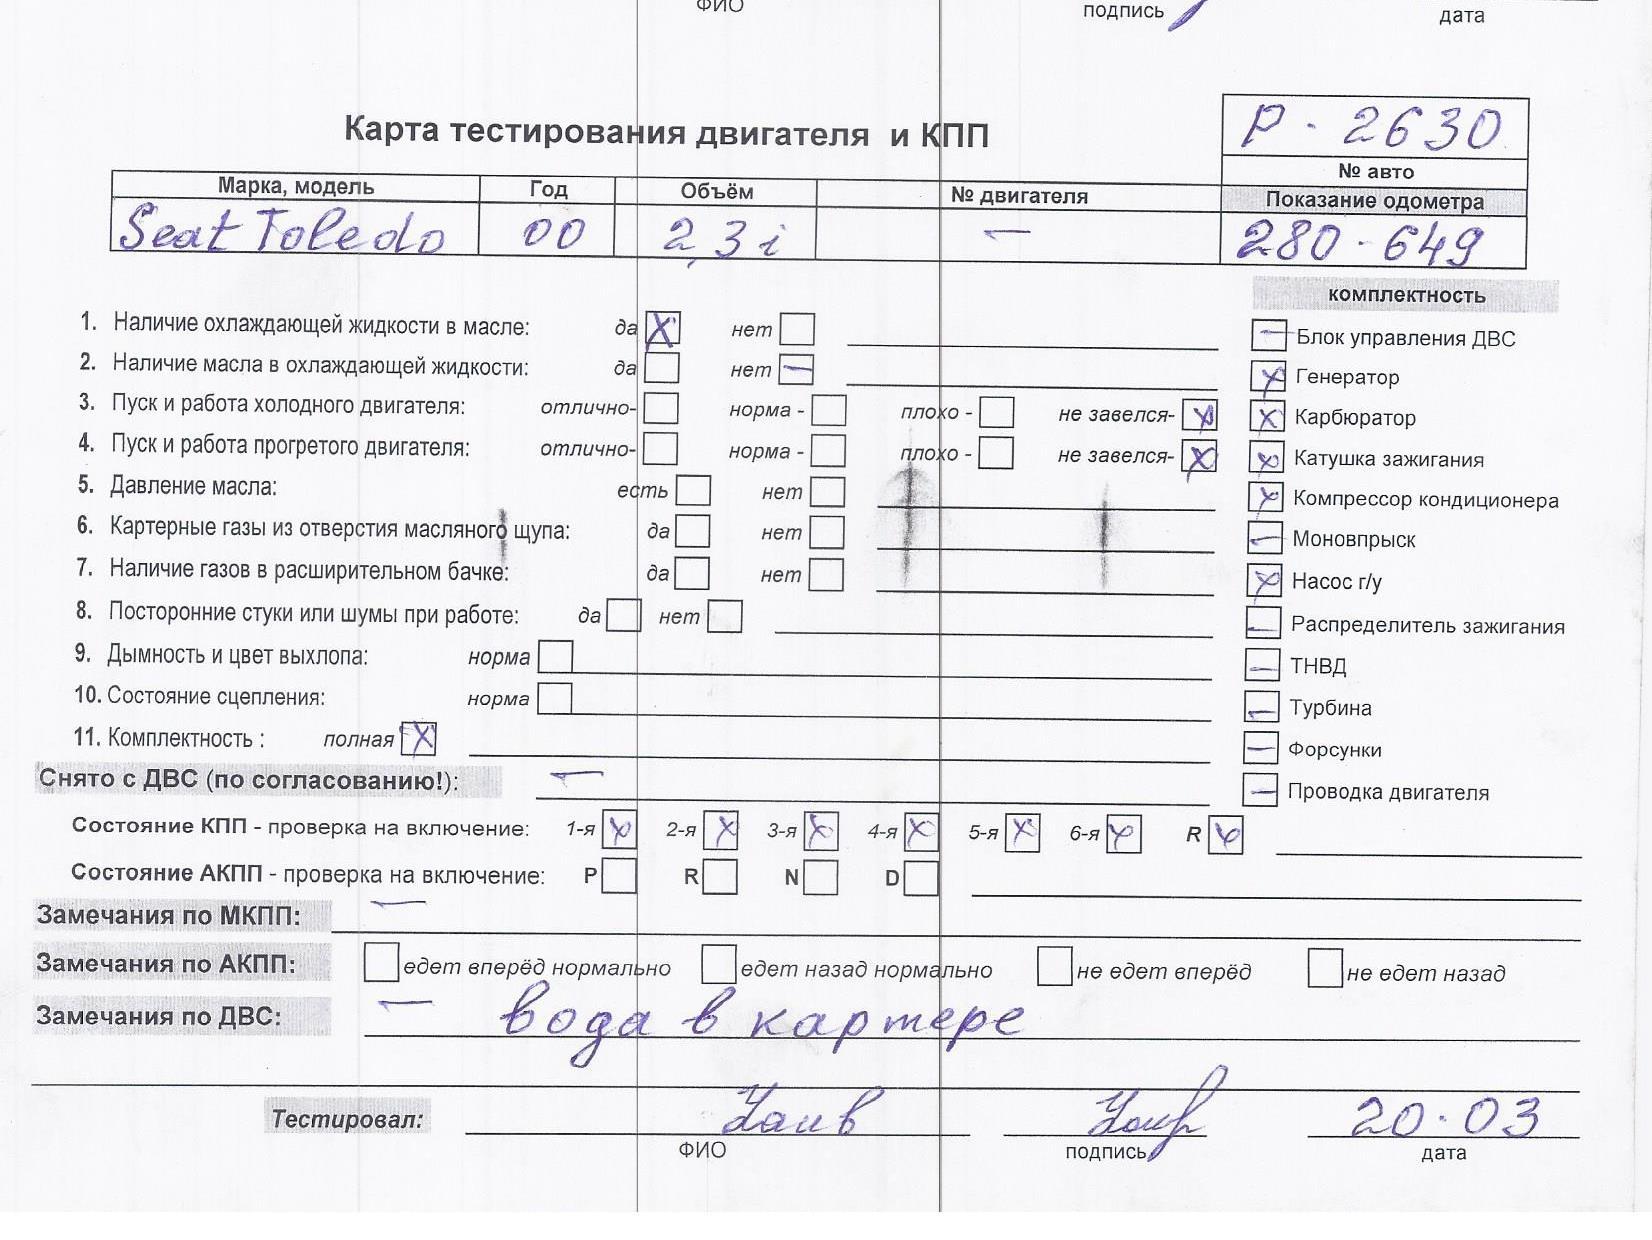 ФИО подпись дата
Карта тестирования двигателя и КПП
Р - 2630
№ авто
Марка, модель Год Объём № двигателя Показание одометра
Seat Toledo 00 2,3 i — 280 - 649
комплектность
1. Наличие охлаждающей жидкости в масле: да X нет
Блок управления ДВС
2. Наличие масла в охлаждающей жидкости: да нет —
Генератор
3. Пуск и работа холодного двигателя: отлично- норма - плохо - не завелся- X
Карбюратор
4. Пуск и работа прогретого двигателя: отлично- норма - плохо - не завелся- X
Катушка зажигания
5. Давление масла: есть нет
Компрессор кондиционера
6. Картерные газы из отверстия масляного щупа: да нет
Моновпрыск
7. Наличие газов в расширительном бачке: да нет
Насос г/у
8. Посторонние стуки или шумы при работе: да нет
Распределитель зажигания
9. Дымность и цвет выхлопа: норма
ТНВД
10. Состояние сцепления: норма
Турбина
11. Комплектность : полная X
Форсунки
Снято с ДВС (по согласованию!): —
Проводка двигателя
Состояние КПП - проверка на включение: 1-я X 2-я X 3-я X 4-я X 5-я X 6-я X R X
Состояние АКПП - проверка на включение: P R N D
Замечания по МКПП: —
Замечания по АКПП: едет вперёд нормально едет назад нормально не едет вперёд не едет назад
Замечания по ДВС: — вода в картере
Тестировал: 20.03
ФИО подпись дата